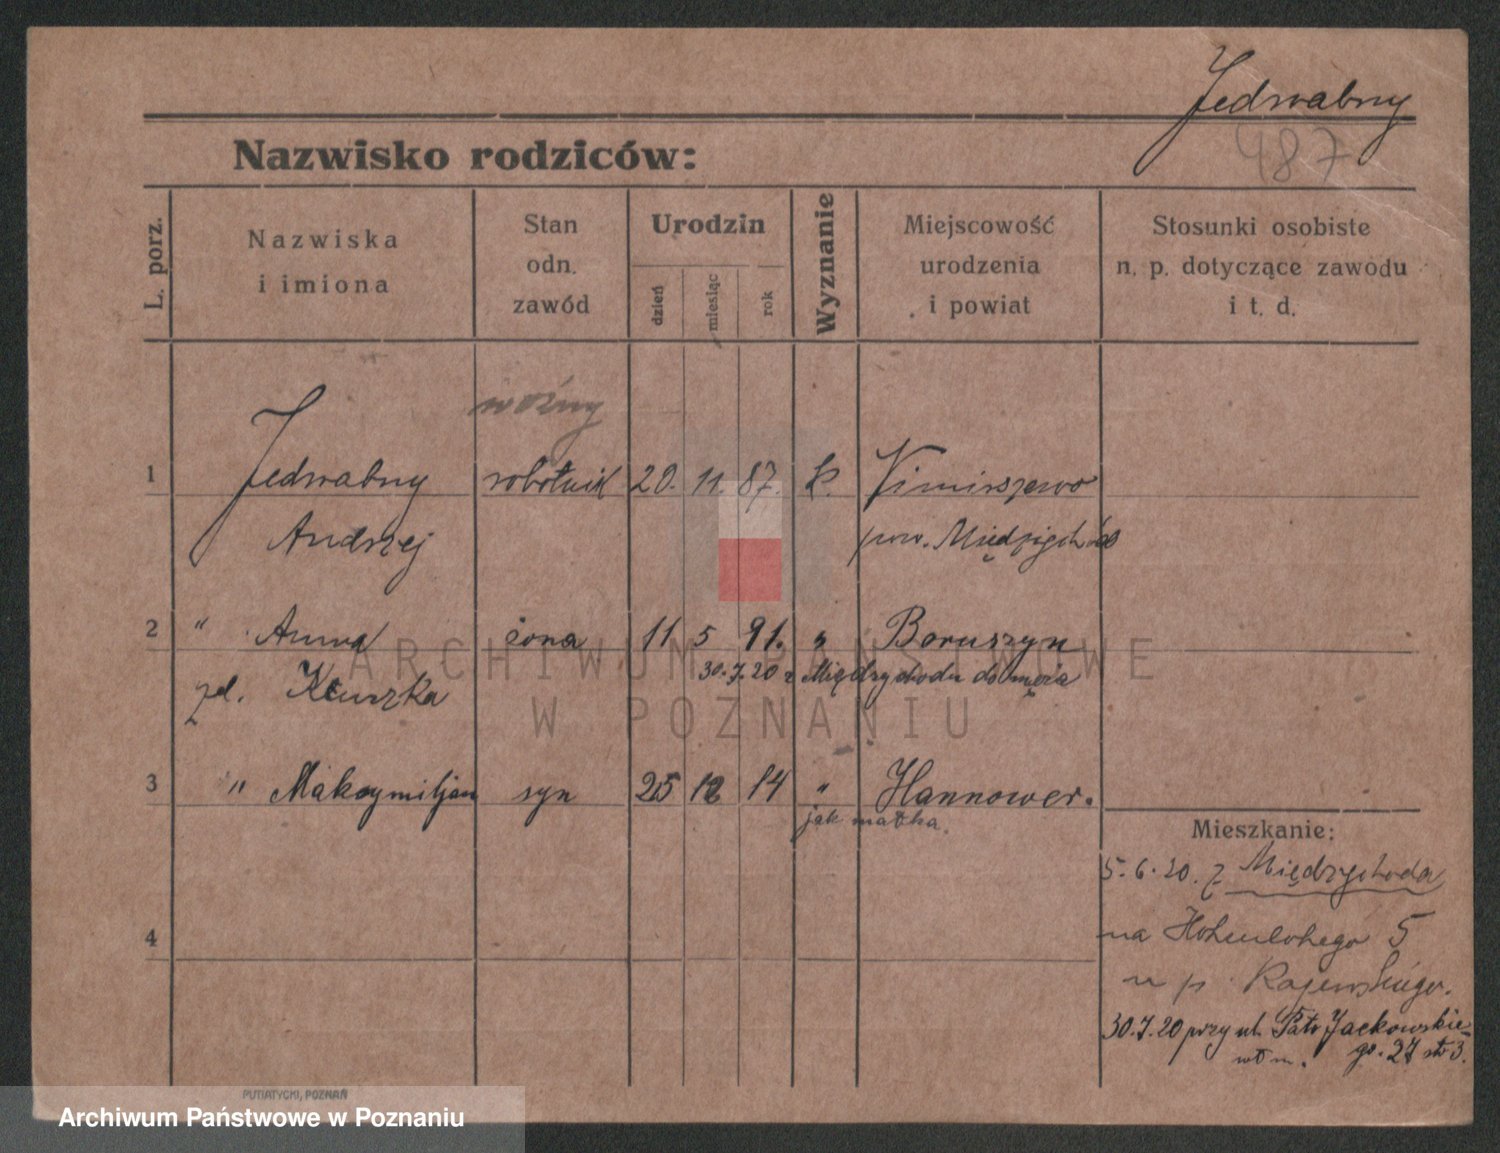 Jedwabny
487
Nazwisko rodziców:
L. porz.
Nazwiska
i imiona
Stan
odn.
zawód
Urodzin
dzień
miesiąc
rok
Wyznanie
Miejscowość
urodzenia
i powiat
Stosunki osobiste
n. p. dotyczące zawodu
i t. d.
woźny
1 Jedwabny robotnik 20. 11. 87. k.
Andrzej pow. Międzychód
2 " Anna żona 11 5 91. " Boruszyn
30.7.20 z Międzychodu do męża
zd.
3 " Maksymiljan syn 25 12 14 " Hannower.
jak matka.
Mieszkanie:
5.6.20. z Międzychoda
4
na Hohenlohego 5
u p. Rajewskiego.
30.7.20 przy ul. Patr Jackowskie
go. 27 st 3.
wł m.
ARCHIWUM PAŃSTWOWE
W POZNANIU
PUTIATYCKI, POZNAŃ
Archiwum Państwowe w Poznaniu